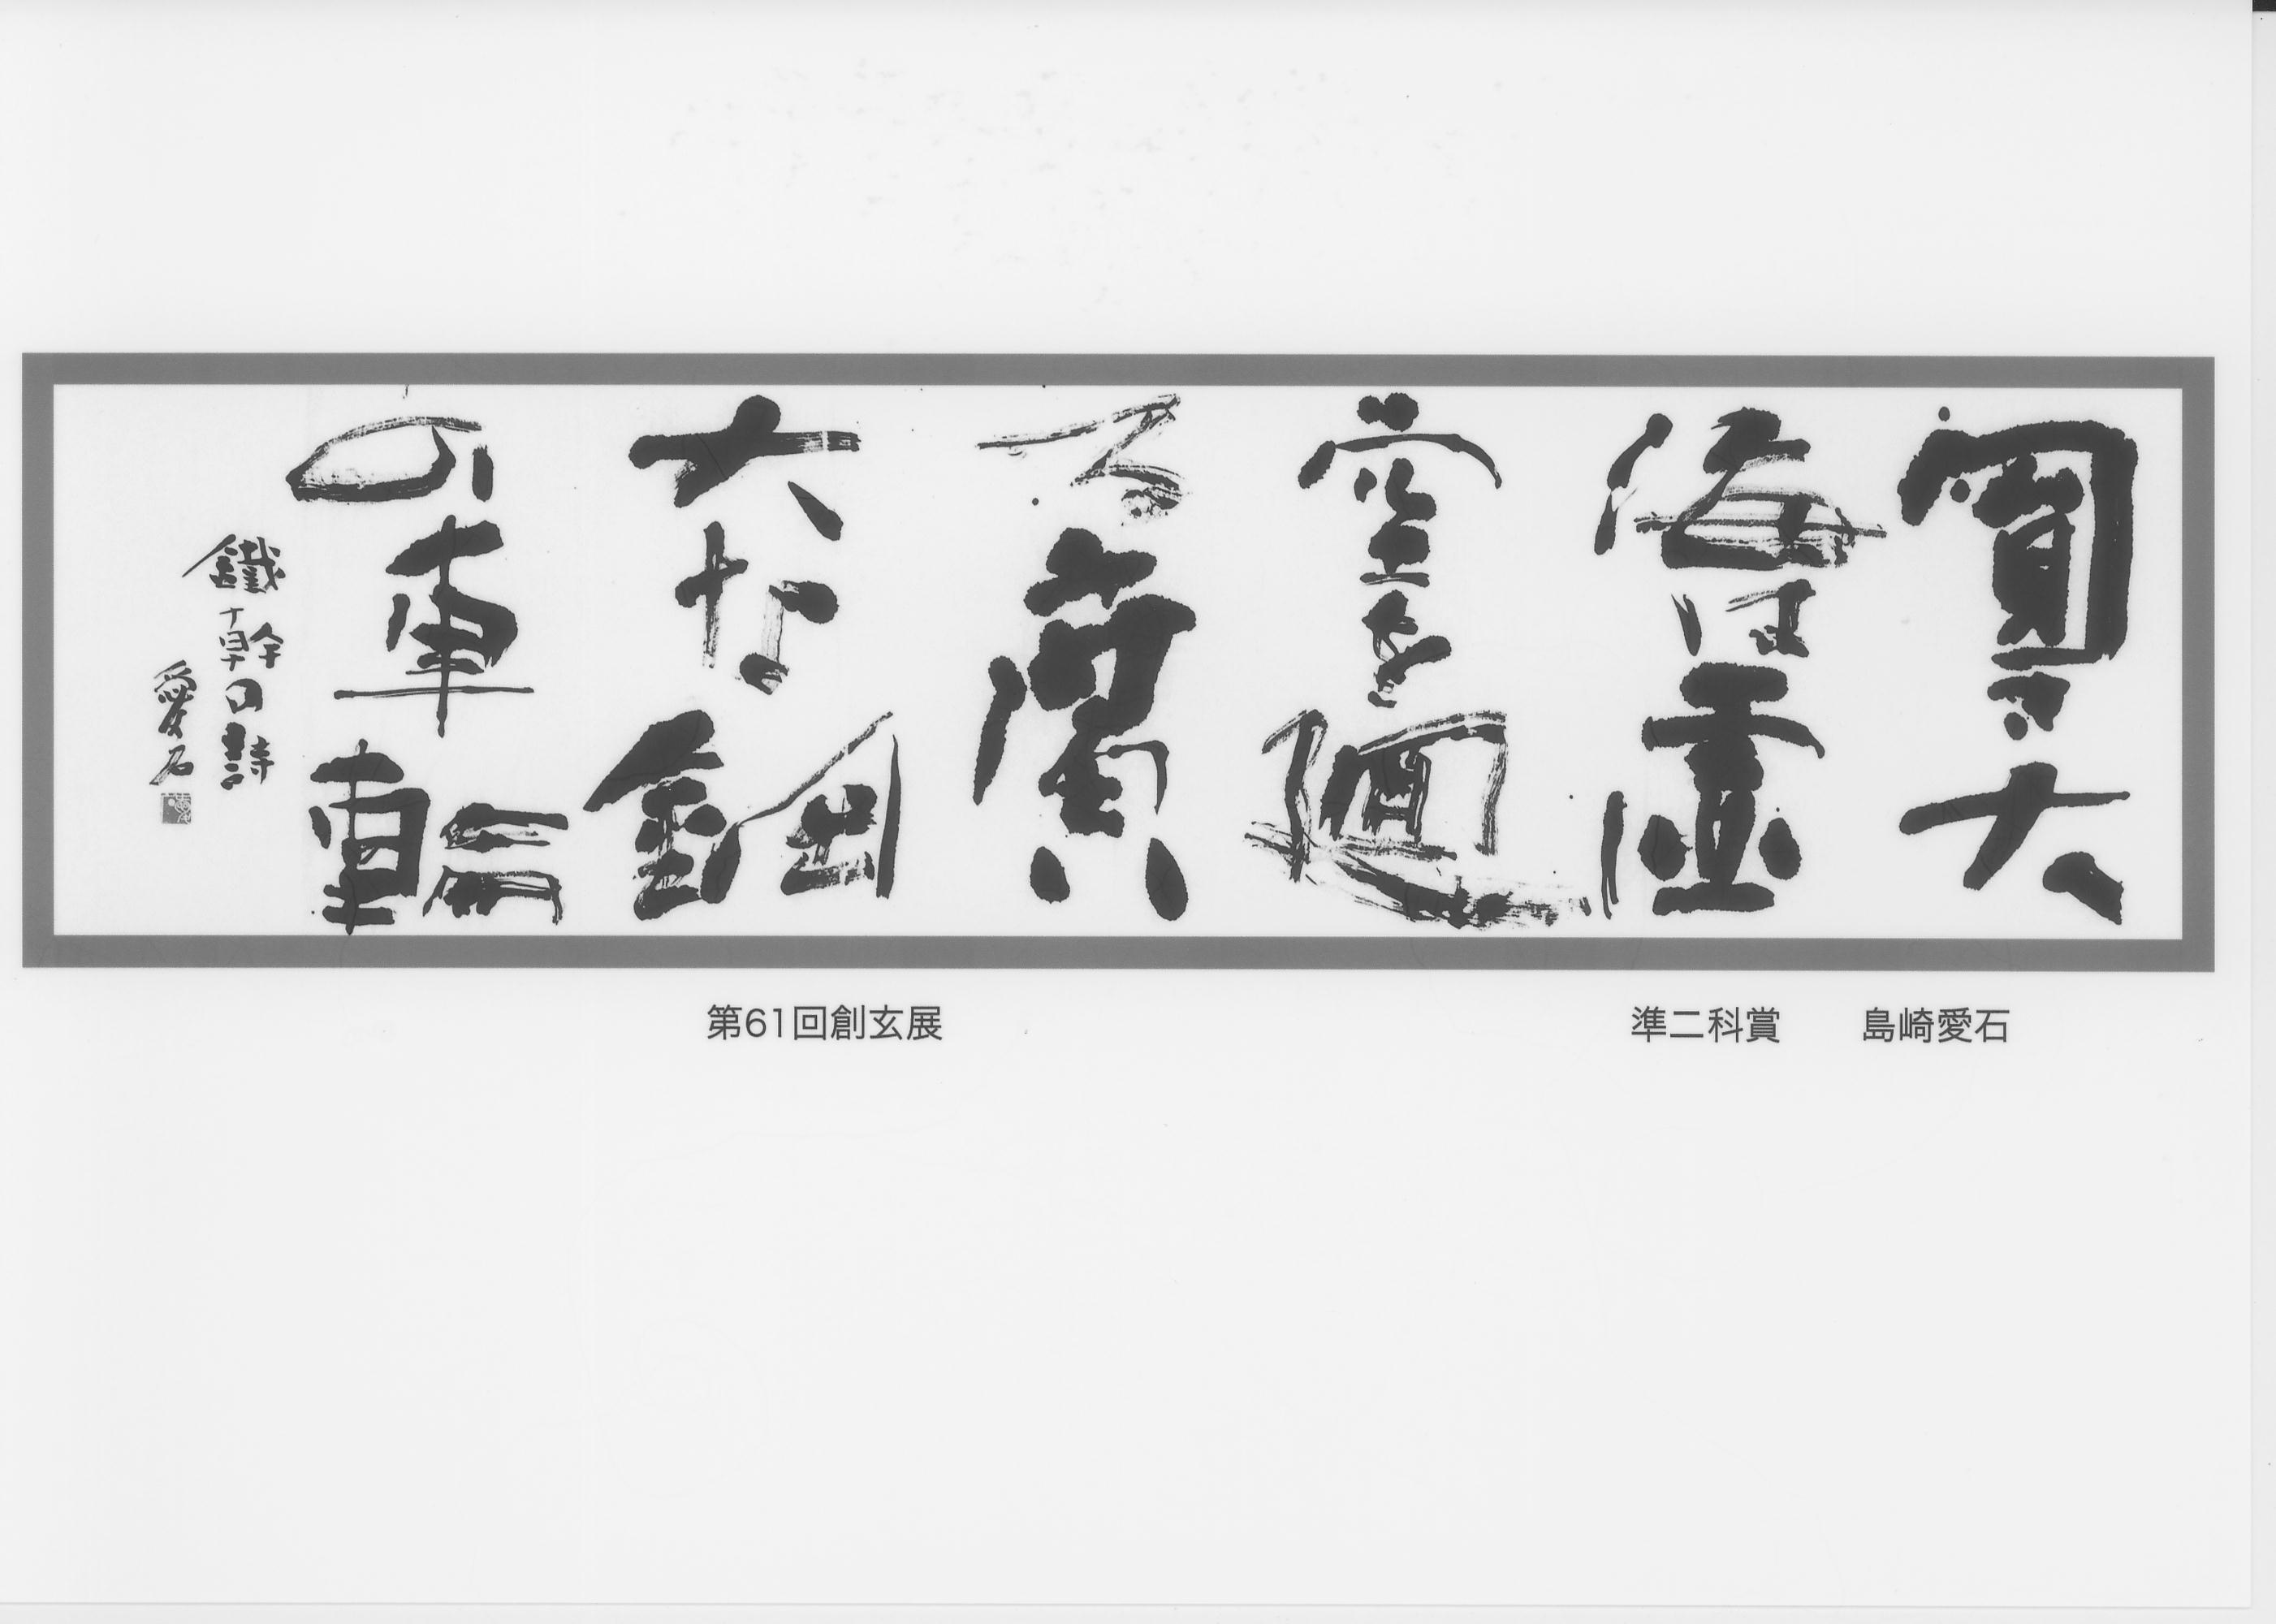 圓 大
海は虚
空を廻
る廣
大な鋼
の車輪
鐵幹の詩
愛石
第61回創玄展 準二科賞 島崎愛石